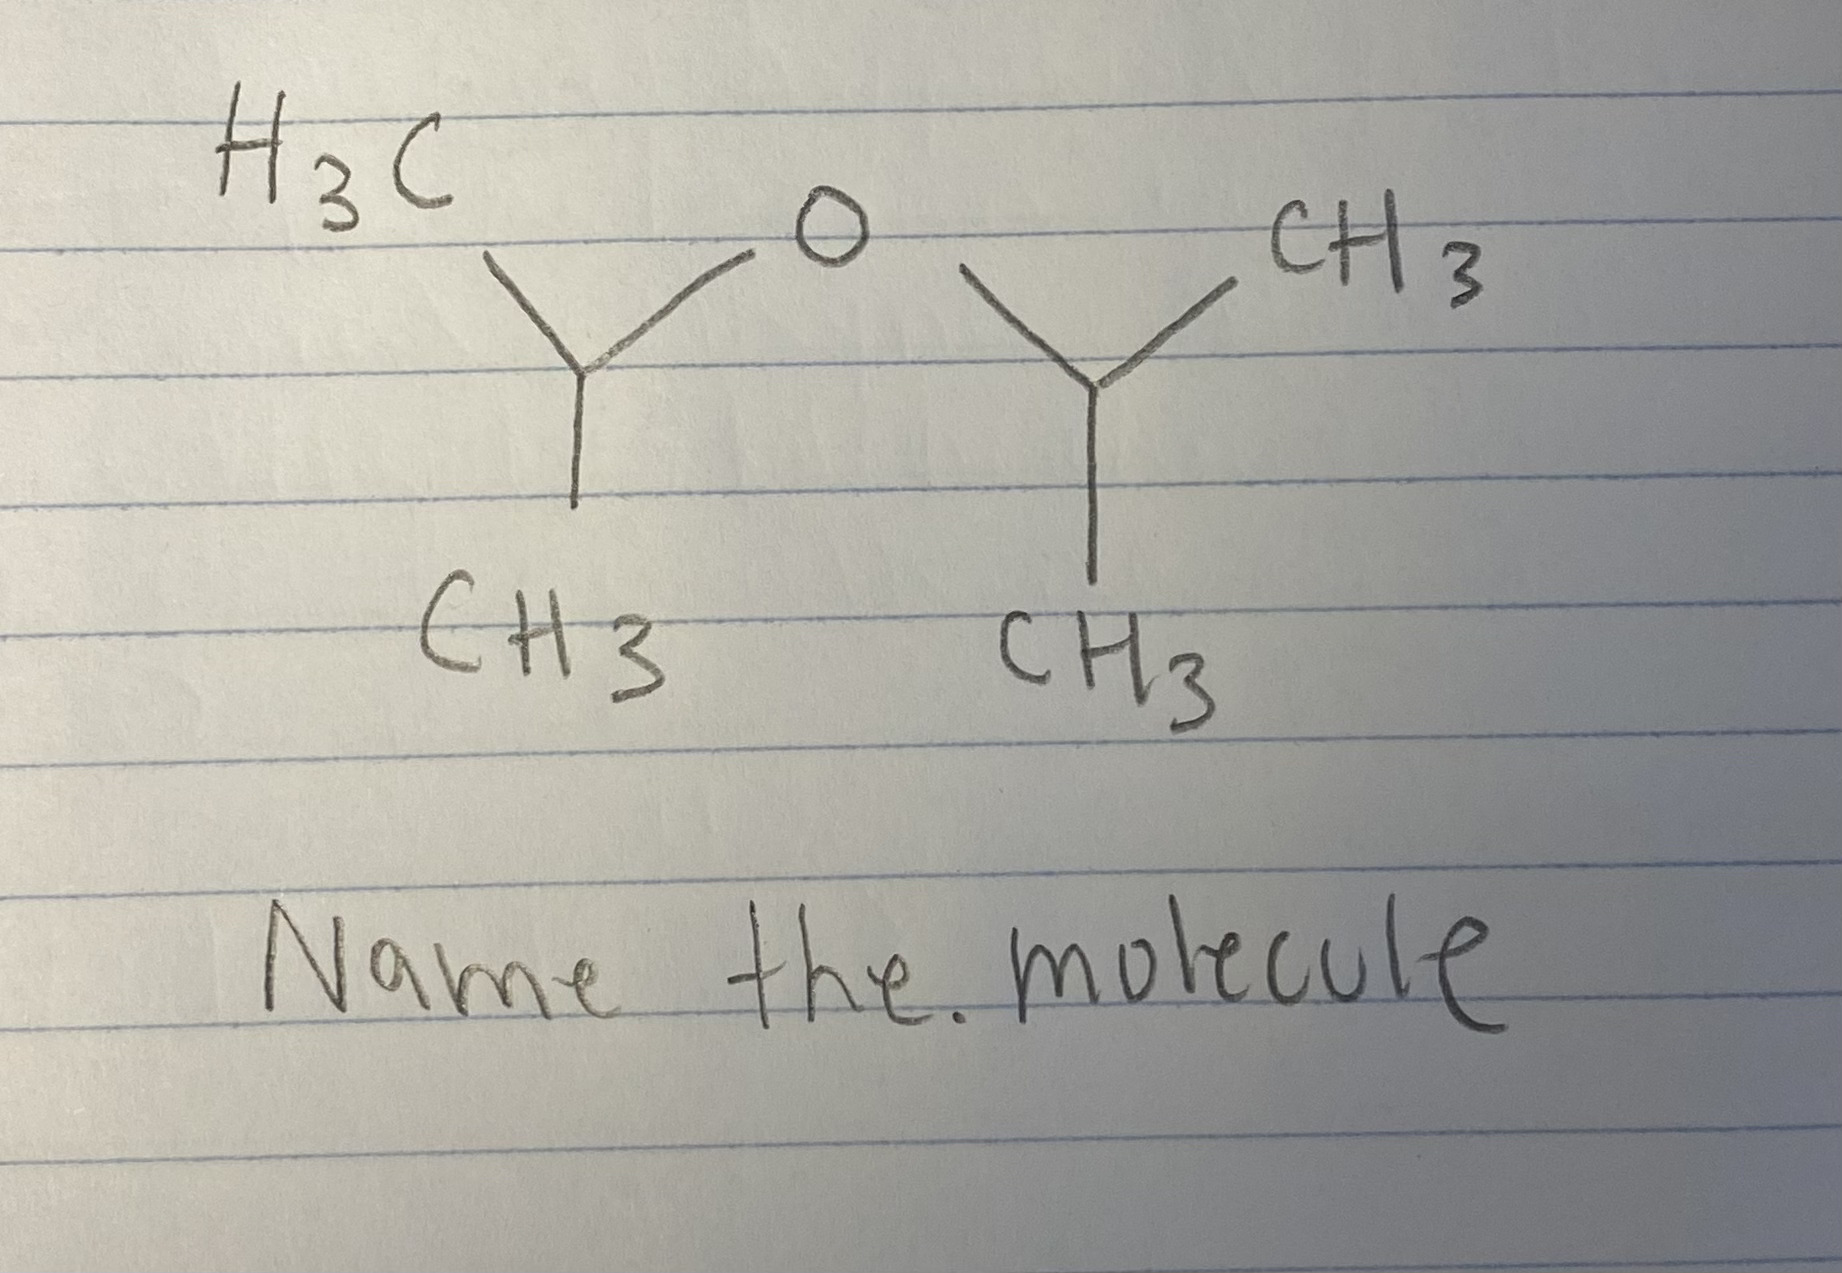 H3C
O
CH3
CH3
CH3
Name the. molecule